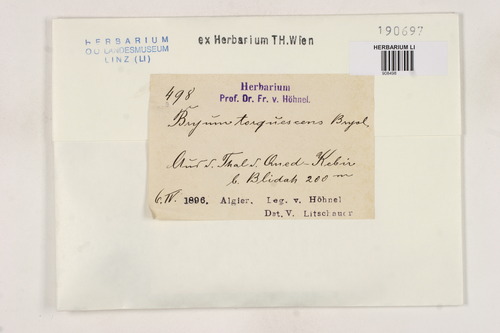 HERBARIUM
OÖ LANDESMUSEUM
LINZ (LI)
ex Herbarium TH.Wien
190697
HERBARIUM LI
498
Herbarium
Prof. Dr. Fr. v. Höhnel.
Bryum torquescens Bryol.
Aus d. Thal d. Oued-Kebir
b. Blidah 200 m
6. IV. 1896. Algier. Leg. v. Höhnel
Det. V. Litschauer